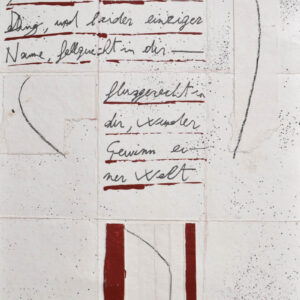 Ding, und beider einziger
Name, fellgerecht in dir —
fluggerecht in
dir, wunder
Gewinn ei-
ner Welt